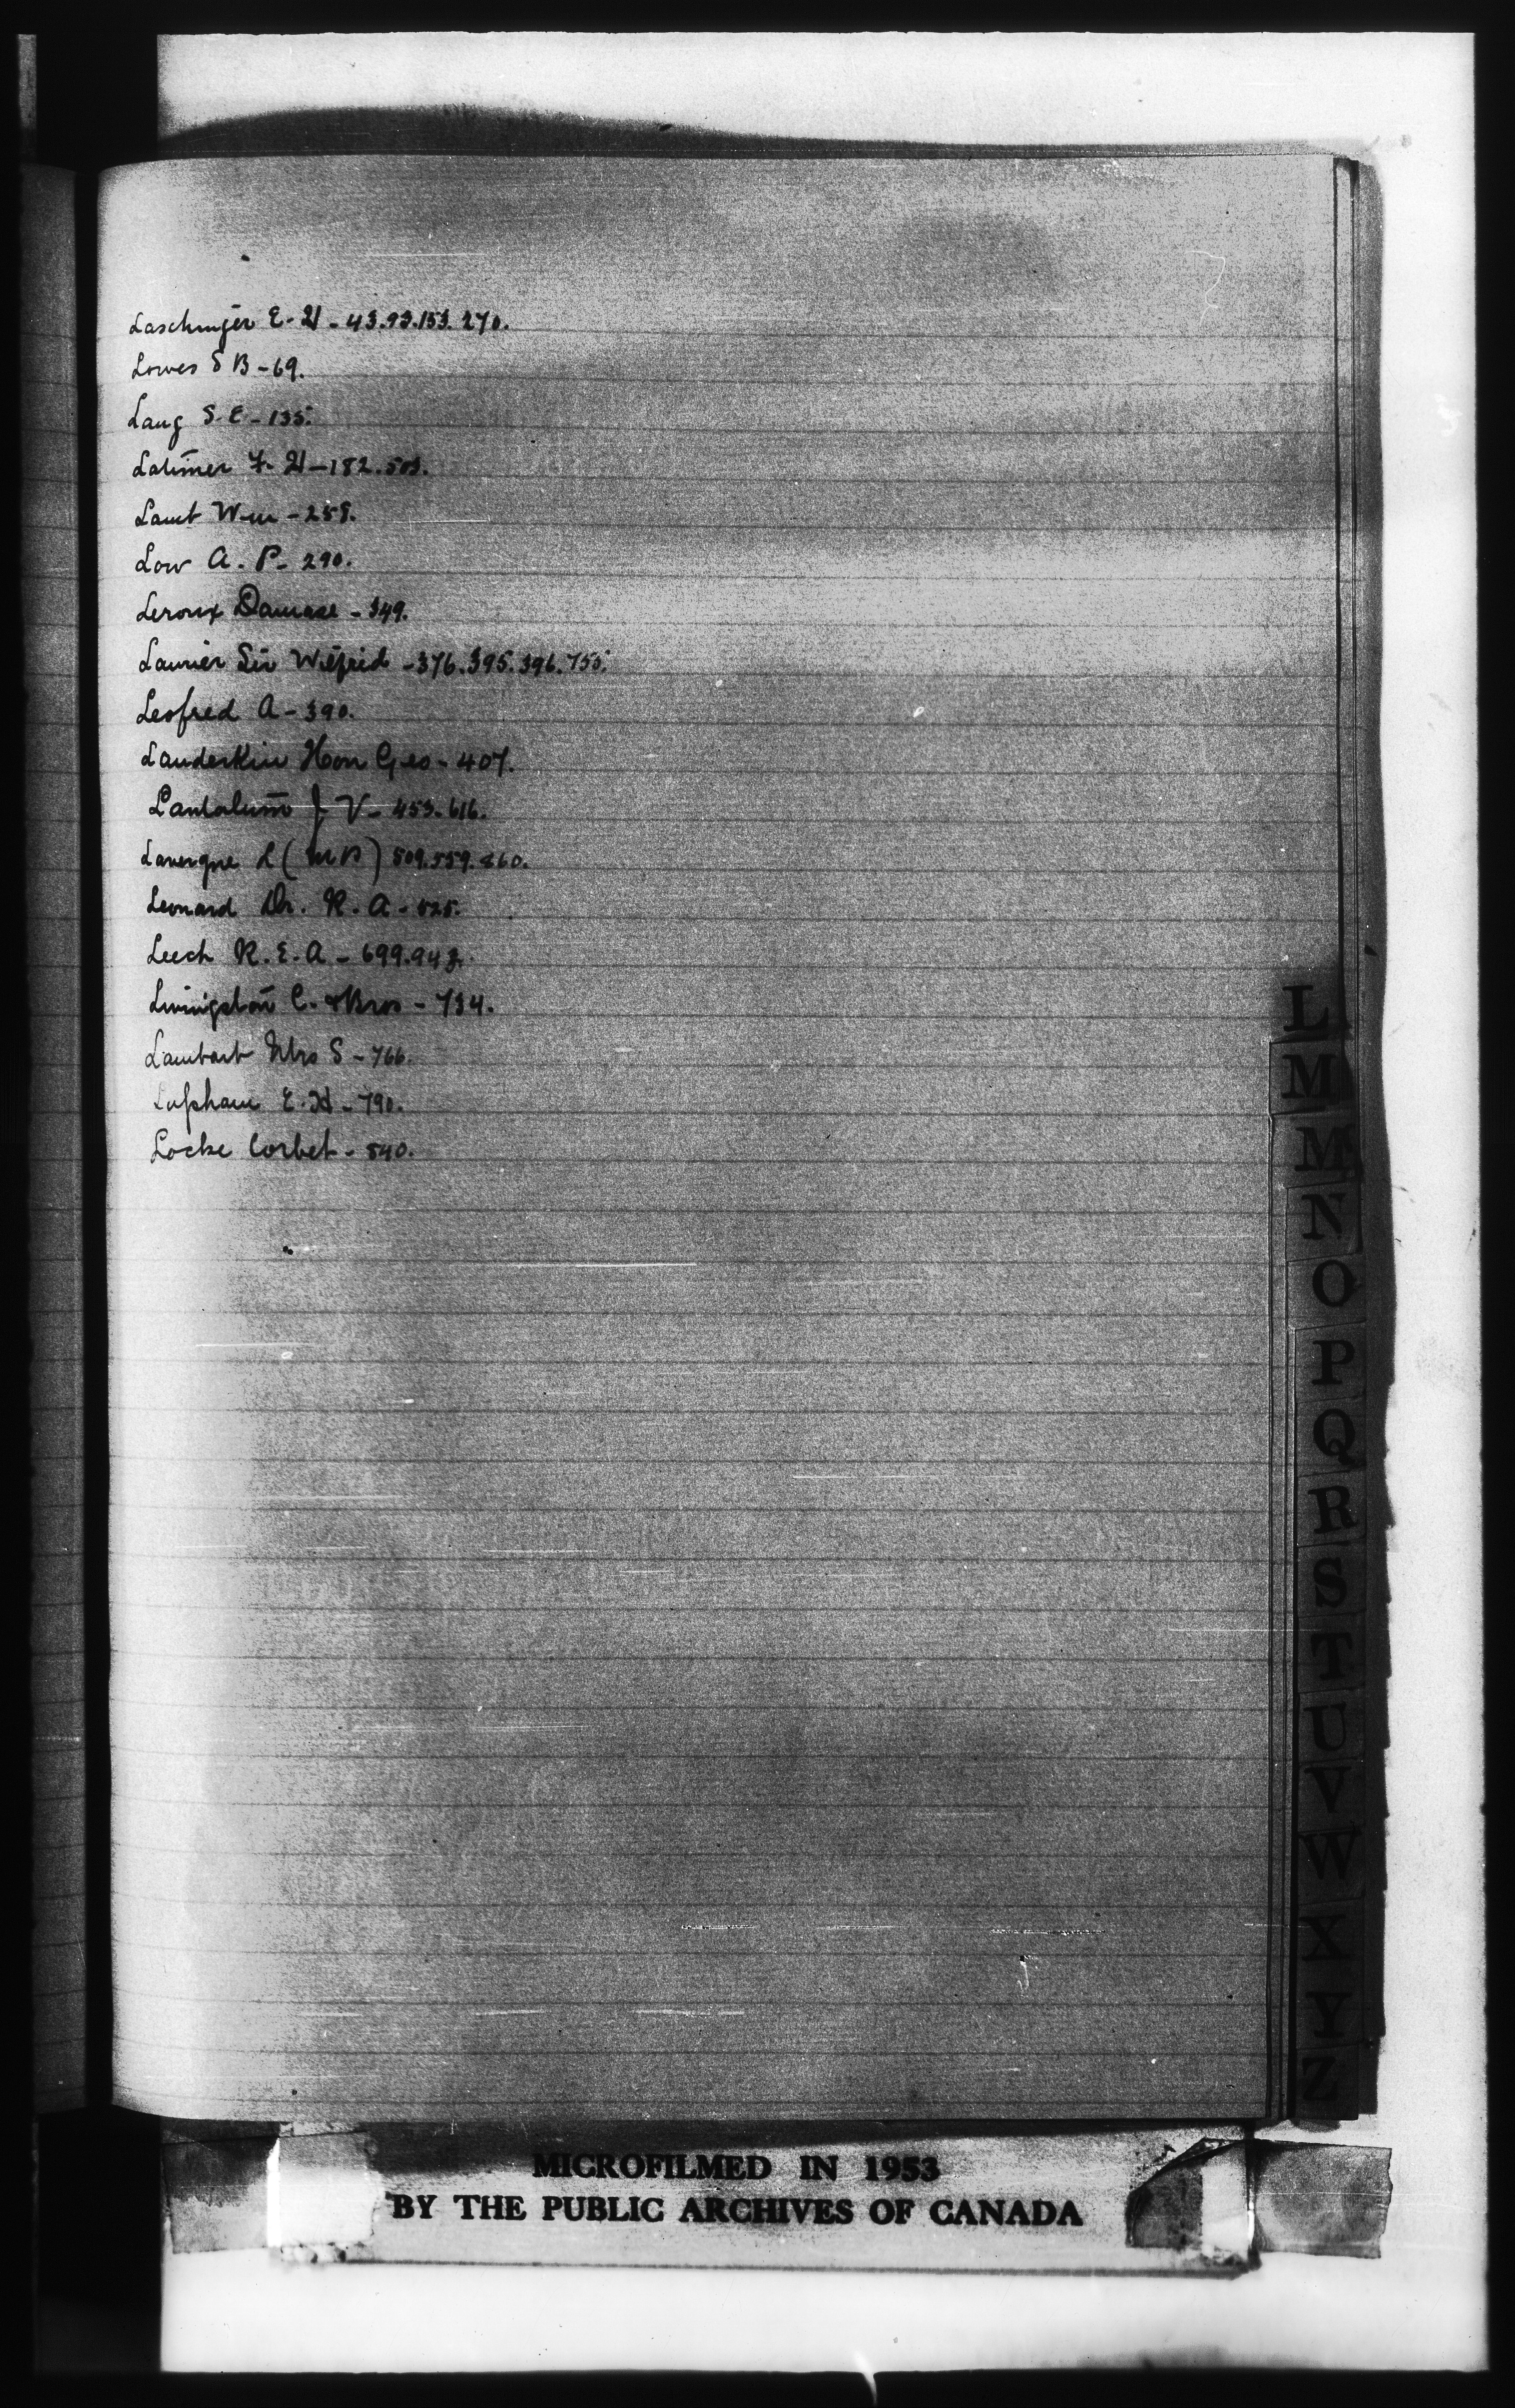 Laschinger E. H - 43.93.153.270.
Lowes S B - 69.
Lang S. E - 135.
Latimer F. H - 182.503.
Lamb Wm - 259.
Low A. P - 290.
Leroux Damase - 349.
Laurier Sir Wilfrid - 376.395.396.755.
Leofred A - 390.
Landerkin Hon Geo - 407.
Lantalum J V - 453.616.
Lavergne L (MP) 509.559.860.
Leonard Dr. R. A - 525.
Leech R. E. A - 699.942.
Livingston C. & Bros - 734.
Lambart Mrs S - 766.
E. H - 790.
Locke Corbet - 840.
L
M
M
N
O
P
Q
R
S
T
U
V
W
X
Y
Z
MICROFILMED IN 1953
BY THE PUBLIC ARCHIVES OF CANADA